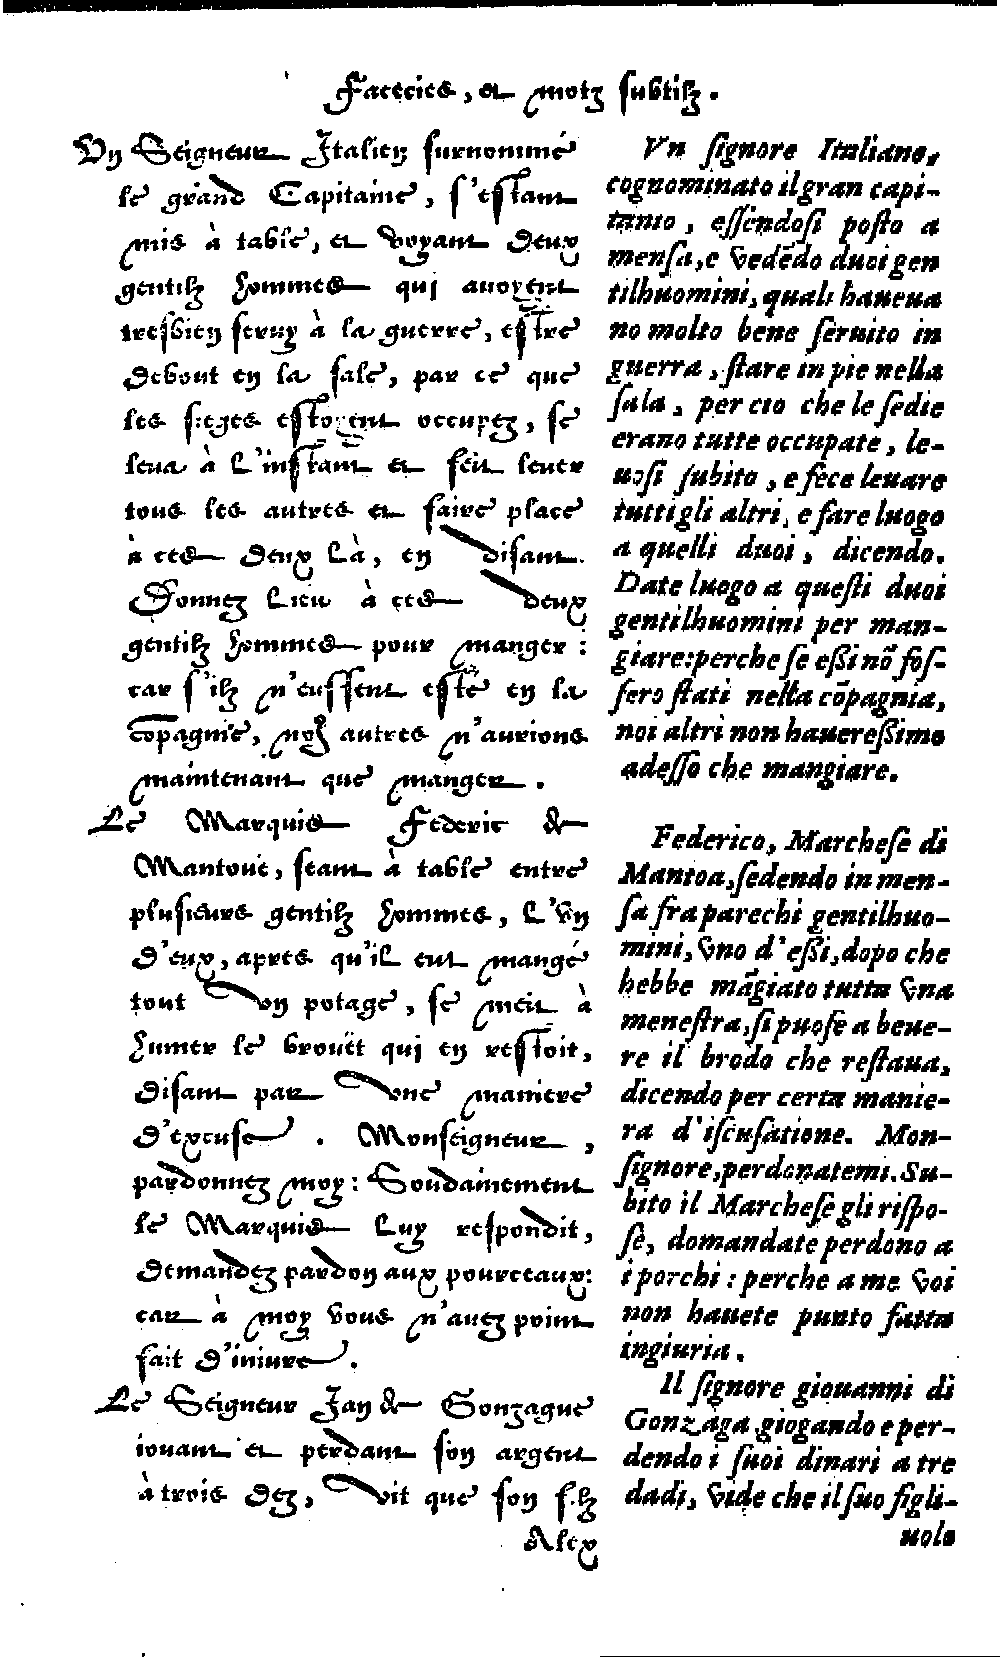 Faceties, et motz subtilz.
Vn Seigneur Italien surnommé
le grand Capitaine, s'estant
mis à table, et voyant deux
gentilz hommes qui auoyent
tresbien seruy à la guerre, estre
debout en la sale, par ce que
les sieges estoyent occupez, se
leua à l'instant et feit leuer
tous les autres et faire place
à ces deux là, en disant.
Donnez lieu à ces deux
gentilz hommes pour manger:
car s'ilz n'eussent esté en la
cõpagnie, noz autres n'aurions
maintenant que manger.
Le Marquis Federic de
Mantoue, seant à table entre
plusieurs gentilz hommes, l'vn
d'eux, apres qu'il eut mangé
tout son potage, se meit à
humer le brouët qui en restoit,
disant par vne maniere
d'excuse. Monseigneur,
pardonnez moy: Soudainement
le Marquis luy respondit,
demandez pardon aux pourceaux:
car à moy vous n'auez point
fait d'iniure.
Le Seigneur Jan de Gonzague
iouant et perdant son argent
à trois dez, vit que son filz
Alex
Vn ſignore Italiano,
cognominato il gran capi-
tanio, eſſendoſi poſto a
menſa, e vedẽdo duoi gen
tilhuomini, quali haueua
no molto bene ſeruito in
guerra, ſtare in pie nella
ſala, per cio che le ſedie
erano tutte occupate, le-
uoſi ſubito, e fece leuare
tutti gli altri, e fare luogo
a quelli duoi, dicendo.
Date luogo a queſti duoi
gentilhuomini per man-
giare: perche ſe eßi nõ foſ-
ſero ſtati nella cõpagnia,
noi altri non hauereßimo
adeſſo che mangiare.
Federico, Marcheſe di
Mantoa, ſedendo in men-
ſa fra parechi gentilhuo-
mini, vno d'eßi, dopo che
hebbe mãgiato tutta vna
meneſtra, ſi puoſe a beue-
re il brodo che reſtaua,
dicendo per certa manie-
ra d'iſcuſatione. Mon-
ſignore, perdonatemi. Su-
bito il Marcheſe gli riſpo-
ſe, domandate perdono a
i porchi: perche a me voi
non hauete punto fatta
ingiuria.
Il ſignore giouanni di
Gonzaga giogando e per-
dendo i ſuoi dinari a tre
dadi, vide che il ſuo figli-
uolo